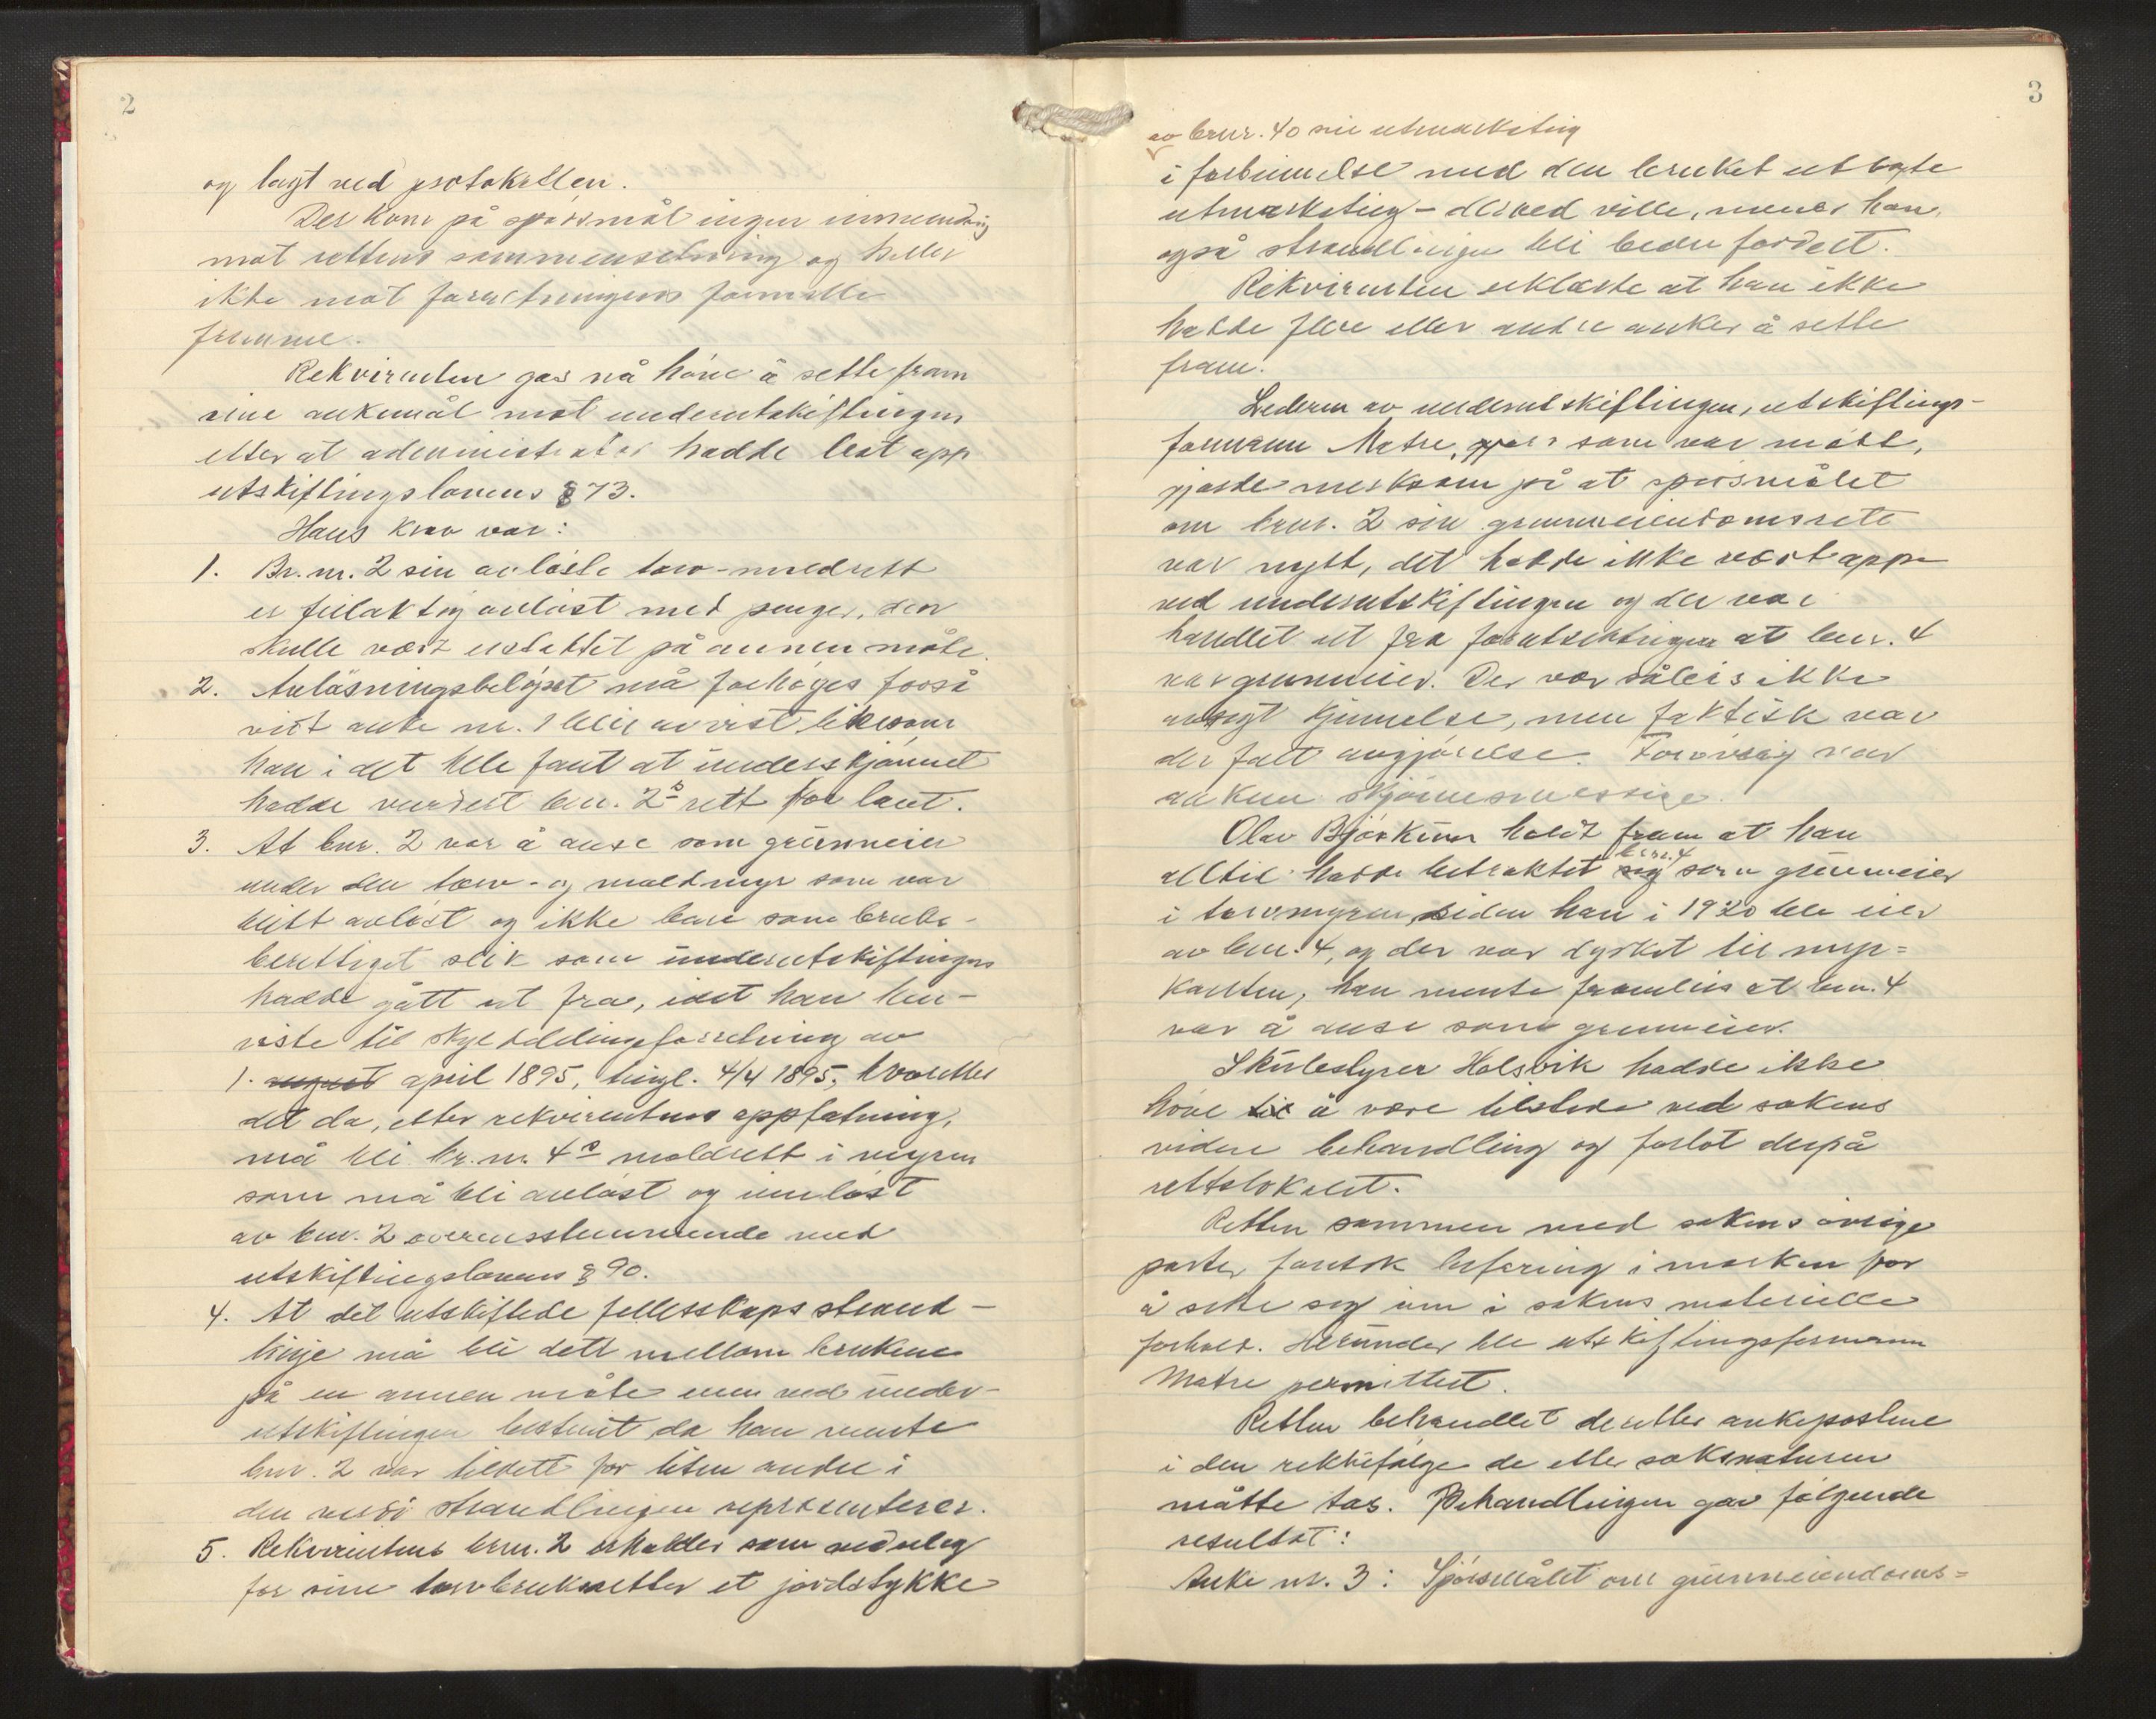 2
og lagt ved protokollen.
Det kom på spørsmål ingen innvending
mot rettens sammensetning og heller
ikke mot forretningens formelle
fremme.
Rekvirenten gav nå høve å sette fram
sine ankemål mot underutskiftingen
etter at administrator hadde lest opp
utskiftingslovens § 73.
Hans krav var:
1. Br.nr. 2 sin avløste torv-muldrett
er feilaktig avløst med penger, den
skulle vært erstattet på annen måte.
2. Avløsningsbeløpet må forhøges forså
vidt anke nr. 1 blir avvist likesom
han i det hele fant at underskjønnet
hadde vurdert bnr. 2s rett for lavt.
3. At bnr. 2 var å anse som grunneier
under den torv- og muldmyr som var
blitt avløst og ikke bare som bruks-
berettiget slik som underutskiftingen
hadde gått ut fra, idet han hen-
viste til skylddelingsforretning av
1. august april 1895, tingl. 4/4 1895, hvoretter
det da, etter rekvirentens oppfatning,
må bli br.nr. 4s muldrett i myren
som må bli avløst og innløst
av bnr. 2 overensstemmende med
utskiftingslovens § 90.
4. At det utskiftede fellesskaps strand-
linje må bli delt mellom brukene
på en annen måte enn ved under-
utskiftingen bestemt da han mente
bnr. 2 var tildelt for liten andel i
den verdi strandlinjen representerer.
5. Rekvirentens bnr. 2 erholder som vederlag
for sine torvbruksretter et jordstykke
3
av bnr. 40 sin utmarksteig
i forbinnelse med den bruket utlagte
utmarksteig - derved ville, mener han,
også strandlinjen bli bedre fordelt.
Rekvirenten erklærte at han ikke
hadde flere eller andre anker å sette
fram.
Lederen av underutskiftingen, utskiftings-
formann Matre, som var møtt,
gjorde merksam på at spørsmålet
om bnr. 2 sin grunneiendomsrett
var nytt, det hadde ikke vært oppe
ved underutskiftingen og der var
handlet ut fra forutsetningen at bnr. 4
var grunneier. Der var således ikke
avsagt kjennelse, men faktisk var
der falt avgjørelse. Forøvrig var
anken skjønnsmessige.
Olav Bjørkum holdt fram at han
alltid hadde betraktet sig bnr. 4 som grunneier
i torvmyren, siden han i 1920 ble eier
av bnr. 4, og der var dyrket til myr=
kanten, han mente framleis at bnr. 4
var å anse som grunneier.
Skulestyrer Holsvik hadde ikke
høve til å være tilstede ved sakens
videre behandling og forlot derpå
rettslokalet.
Retten sammen med sakens øvrige
parter foretok befaring i marken for
å sette seg inn i sakens materielle
forhold. Herunder ble utskiftingsformann
Matre permittert.
Retten behandlet deretter ankepostene
i den rekkefølge de etter saksnaturen
måtte tas. Behandlingen gav følgende
resultat:
Anke nr. 3: Spørsmålet om grunneiendoms=